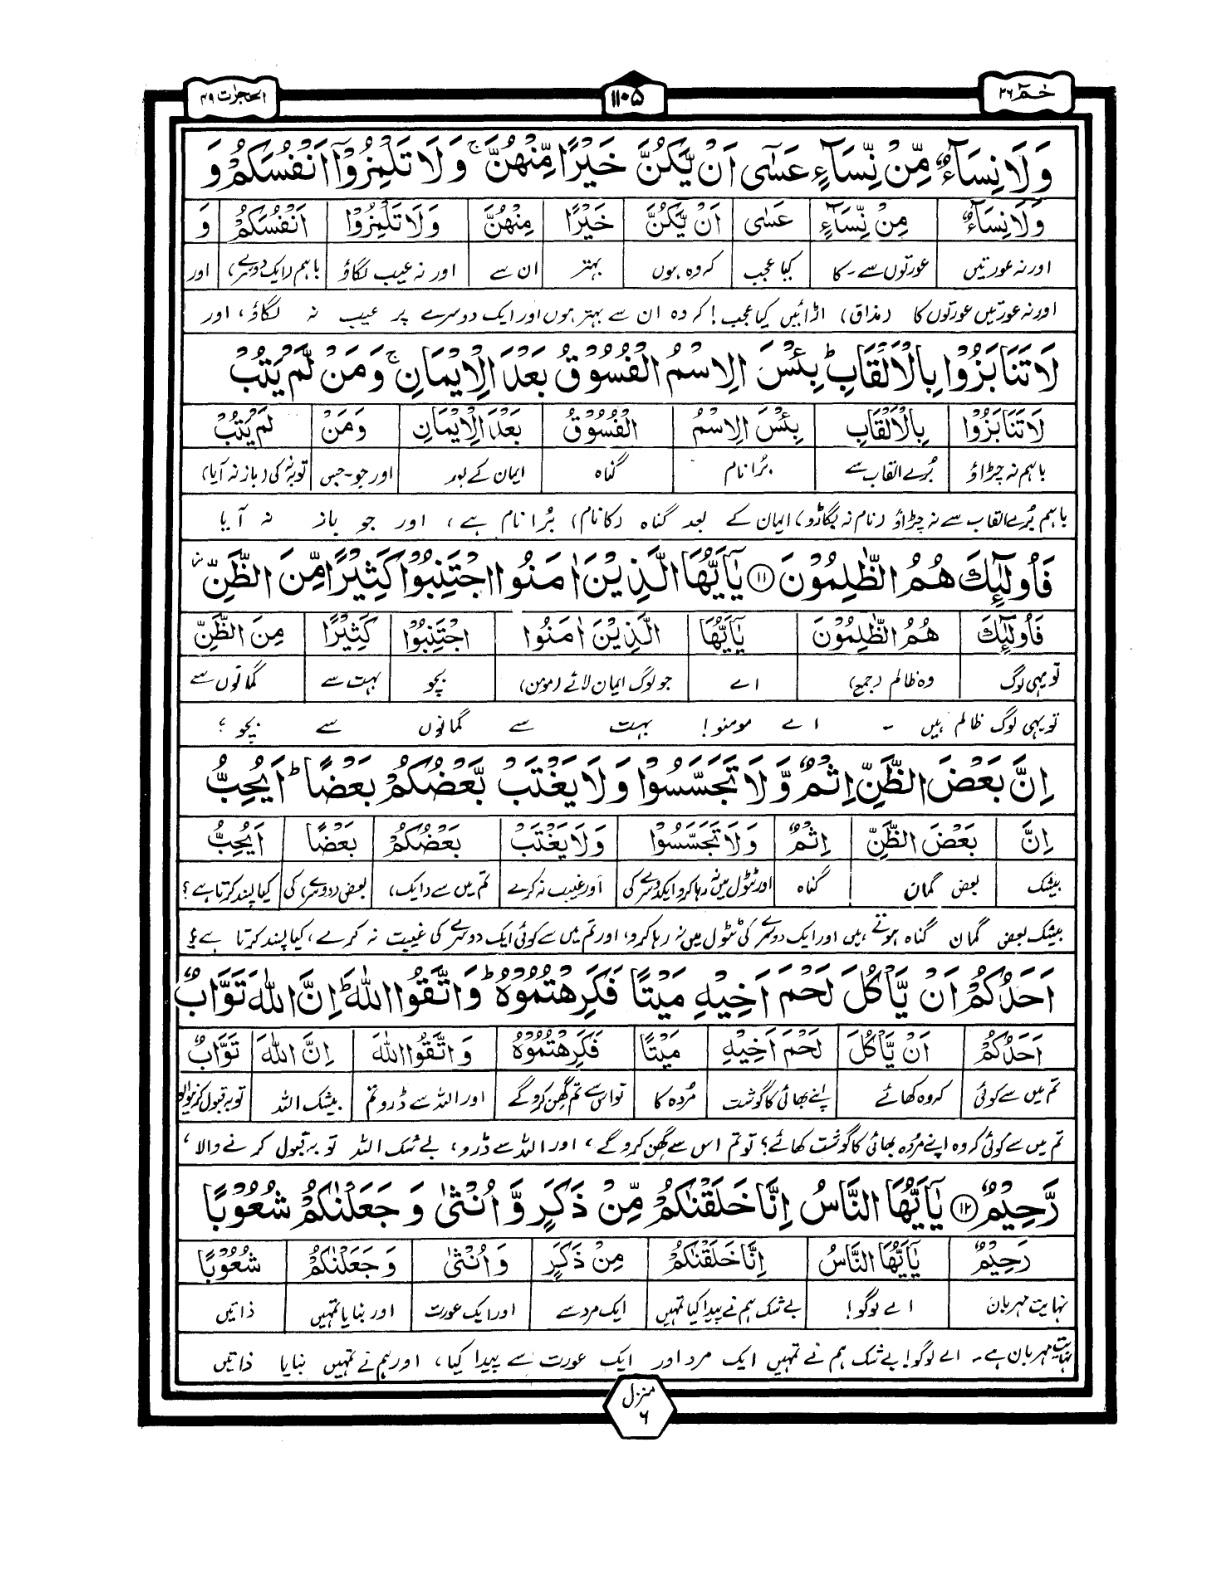 حٰمٓ ۲۶
۱۱۰۵
الحجرٰت ۴۹
وَلَا نِسَآءٌ مِّنْ نِّسَآءٍ عَسٰٓى اَنْ يَّكُنَّ خَيْرًا مِّنْهُنَّ ۚ وَلَا تَلْمِزُوْٓا اَنْفُسَكُمْ وَ
وَلَا نِسَآءٌ مِنْ نِّسَآءٍ عَسٰٓى اَنْ يَّكُنَّ خَيْرًا مِنْهُنَّ وَلَا تَلْمِزُوْٓا اَنْفُسَكُمْ وَ
اور نہ عورتیں عورتوں سے ۔ کا کیا عجب کہ وہ ہوں بہتر ان سے اور نہ عیب لگاؤ باہم (ایک دوسرے) اور
اور نہ عورتیں عورتوں کا (مذاق) اڑائیں کیا عجب! کہ وہ ان سے بہتر ہوں اور ایک دوسرے پر عیب نہ لگاؤ، اور
لَا تَنَابَزُوْا بِالْاَلْقَابِ ؕ بِئْسَ الِاسْمُ الْفُسُوْقُ بَعْدَ الْاِيْمَانِ ۚ وَمَنْ لَّمْ يَتُبْ
لَا تَنَابَزُوْا بِالْاَلْقَابِ بِئْسَ الِاسْمُ الْفُسُوْقُ بَعْدَ الْاِيْمَانِ وَمَنْ لَمْ يَتُبْ
باہم نہ چڑاؤ بُرے القاب سے بُرا نام گناہ ایمان کے بعد اور جو ۔ جس توبہ نہ کی (باز نہ آیا)
باہم بُرے القاب سے نہ چڑاؤ (نام نہ بگاڑو) ایمان کے بعد گناہ (کا نام) بُرا نام ہے، اور جو باز نہ آیا
فَاُولٰٓئِكَ هُمُ الظّٰلِمُوْنَ ۱۱ يٰٓاَيُّهَا الَّذِيْنَ اٰمَنُوا اجْتَنِبُوْا كَثِيْرًا مِّنَ الظَّنِّ
فَاُولٰٓئِكَ هُمُ الظّٰلِمُوْنَ يٰٓاَيُّهَا الَّذِيْنَ اٰمَنُوْا اجْتَنِبُوْا كَثِيْرًا مِنَ الظَّنِّ
تو یہی لوگ وہ ظالم (جمع) اے جو لوگ ایمان لائے (مومن) بچو بہت سے گمانوں سے
تو یہی لوگ ظالم ہیں ۔ اے مومنو! بہت سے گمانوں سے بچو ؛
اِنَّ بَعْضَ الظَّنِّ اِثْمٌ وَّلَا تَجَسَّسُوْا وَلَا يَغْتَبْ بَّعْضُكُمْ بَعْضًا ؕ اَيُحِبُّ
اِنَّ بَعْضَ الظَّنِّ اِثْمٌ وَلَا تَجَسَّسُوْا وَلَا يَغْتَبْ بَعْضُكُمْ بَعْضًا اَيُحِبُّ
بیشک بعض گمان گناہ اور ٹٹول میں نہ رہا کرو ایک دوسرے کی اور غیبت نہ کرے تم میں سے (ایک) بعض (دوسرے) کی کیا پسند کرتا ہے؟
بیشک بعض گمان گناہ ہوتے ہیں اور ایک دوسرے کی ٹٹول میں نہ رہا کرو، اور تم میں سے کوئی ایک دوسرے کی غیبت نہ کرے، کیا پسند کرتا ہے؟
اَحَدُكُمْ اَنْ يَّاْكُلَ لَحْمَ اَخِيْهِ مَيْتًا فَكَرِهْتُمُوْهُ ؕ وَاتَّقُوا اللّٰهَ ؕ اِنَّ اللّٰهَ تَوَّابٌ
اَحَدُكُمْ اَنْ يَّاْكُلَ لَحْمَ اَخِيْهِ مَيْتًا فَكَرِهْتُمُوْهُ وَاتَّقُوا اللّٰهَ اِنَّ اللّٰهَ تَوَّابٌ
تم میں سے کوئی کہ وہ کھائے اپنے بھائی کا گوشت مُردہ کا تو اس سے تم گھن کروگے اور اللہ سے ڈرو تم بیشک اللہ توبہ قبول کرنیوالا
تم میں سے کوئی کہ وہ اپنے مُردہ بھائی کا گوشت کھائے؟ تو تم اس سے گھن کروگے، اور اللہ سے ڈرو، بے شک اللہ توبہ قبول کرنے والا،
رَّحِيْمٌ ۱۲ يٰٓاَيُّهَا النَّاسُ اِنَّا خَلَقْنٰكُمْ مِّنْ ذَكَرٍ وَّاُنْثٰى وَجَعَلْنٰكُمْ شُعُوْبًا
رَحِيْمٌ يٰٓاَيُّهَا النَّاسُ اِنَّا خَلَقْنٰكُمْ مِنْ ذَكَرٍ وَاُنْثٰى وَجَعَلْنٰكُمْ شُعُوْبًا
نہایت مہربان اے لوگو! بے شک ہم نے پیدا کیا تمہیں ایک مرد سے اور ایک عورت اور بنایا تمہیں ذاتیں
نہایت مہربان ہے۔ اے لوگو! بے شک ہم نے تمہیں ایک مرد اور ایک عورت سے پیدا کیا، اور ہم نے تمہیں بنایا ذاتیں
منزل
۶